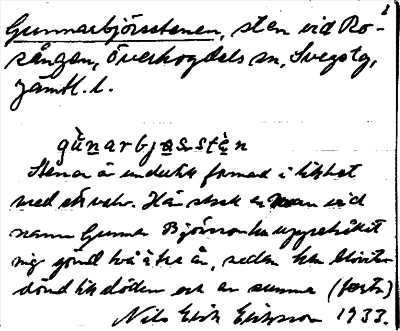 1
Gunnarbjörsstenen, sten vid Ro-
sången, Överhogdals sn, Svegstg,
Jämtl. l.
gùnarbjas̀stèn
Stenen är
med ett valv. Här skall en man vid
namn Gunnar Björnson ha uppehållit
sig i två à tre år, sedan han blivit
dömd till döden och är samma (forts.)
Nils Erik Eriksson 1933.